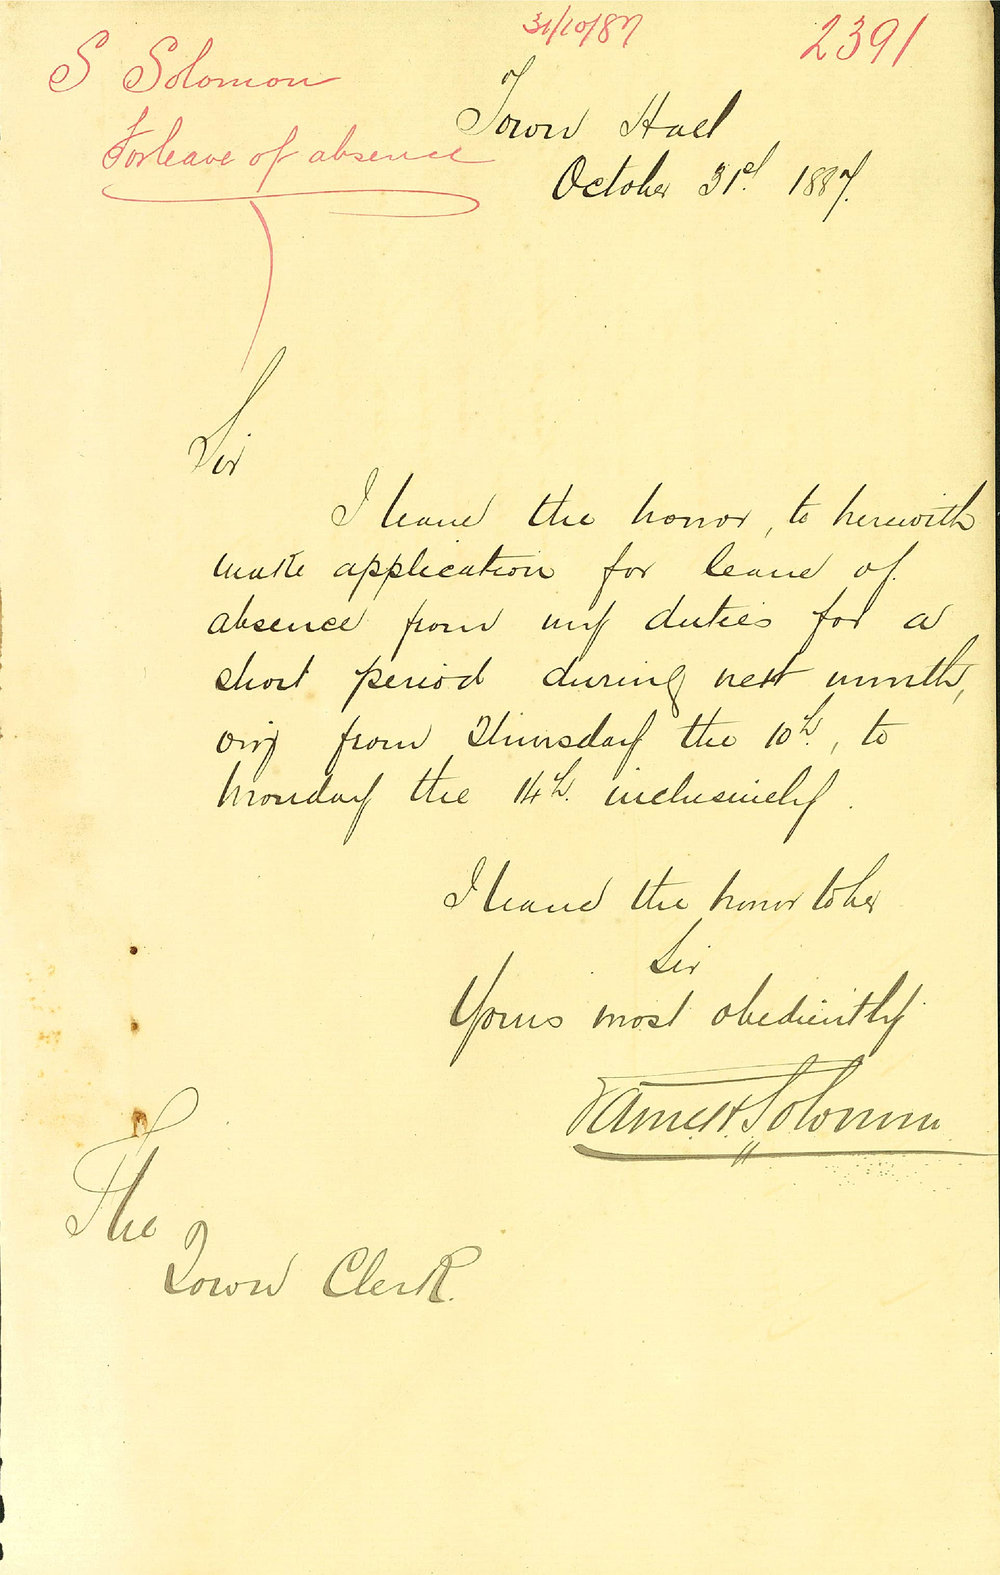 31/10/87
2391
S Solomon
For leave of absence
Town Hall
October 31st. 1887.
Sir
I have the honor, to herewith
make application for leave of
absence from my duties for a
short period during next month,
from Thursday the 10th., to
Monday the 14th. inclusively.
I have the honor to be
Sir
Yours most obediently
James H. Solomon
The
Town Clerk.